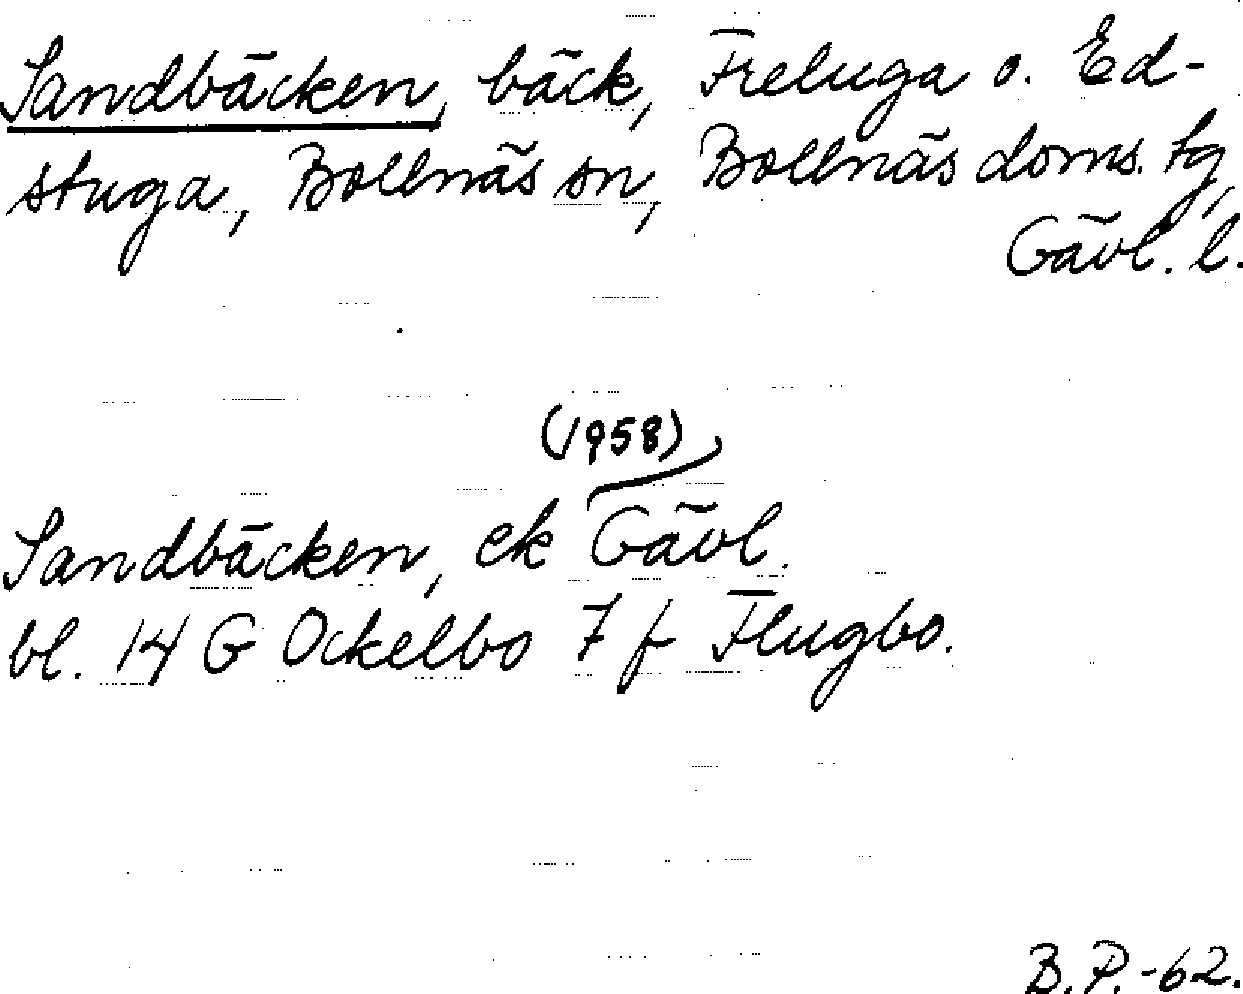 Sandbäcken, bäck, Freluga o. Ed-
stuga, Bollnäs sn, Bollnäs doms. tg,
Gävl. l.
(1958)
Sandbäcken, ek Gävl.
bl. 14 G Ockelbo 7 f Flugbo.
B. P. -62.